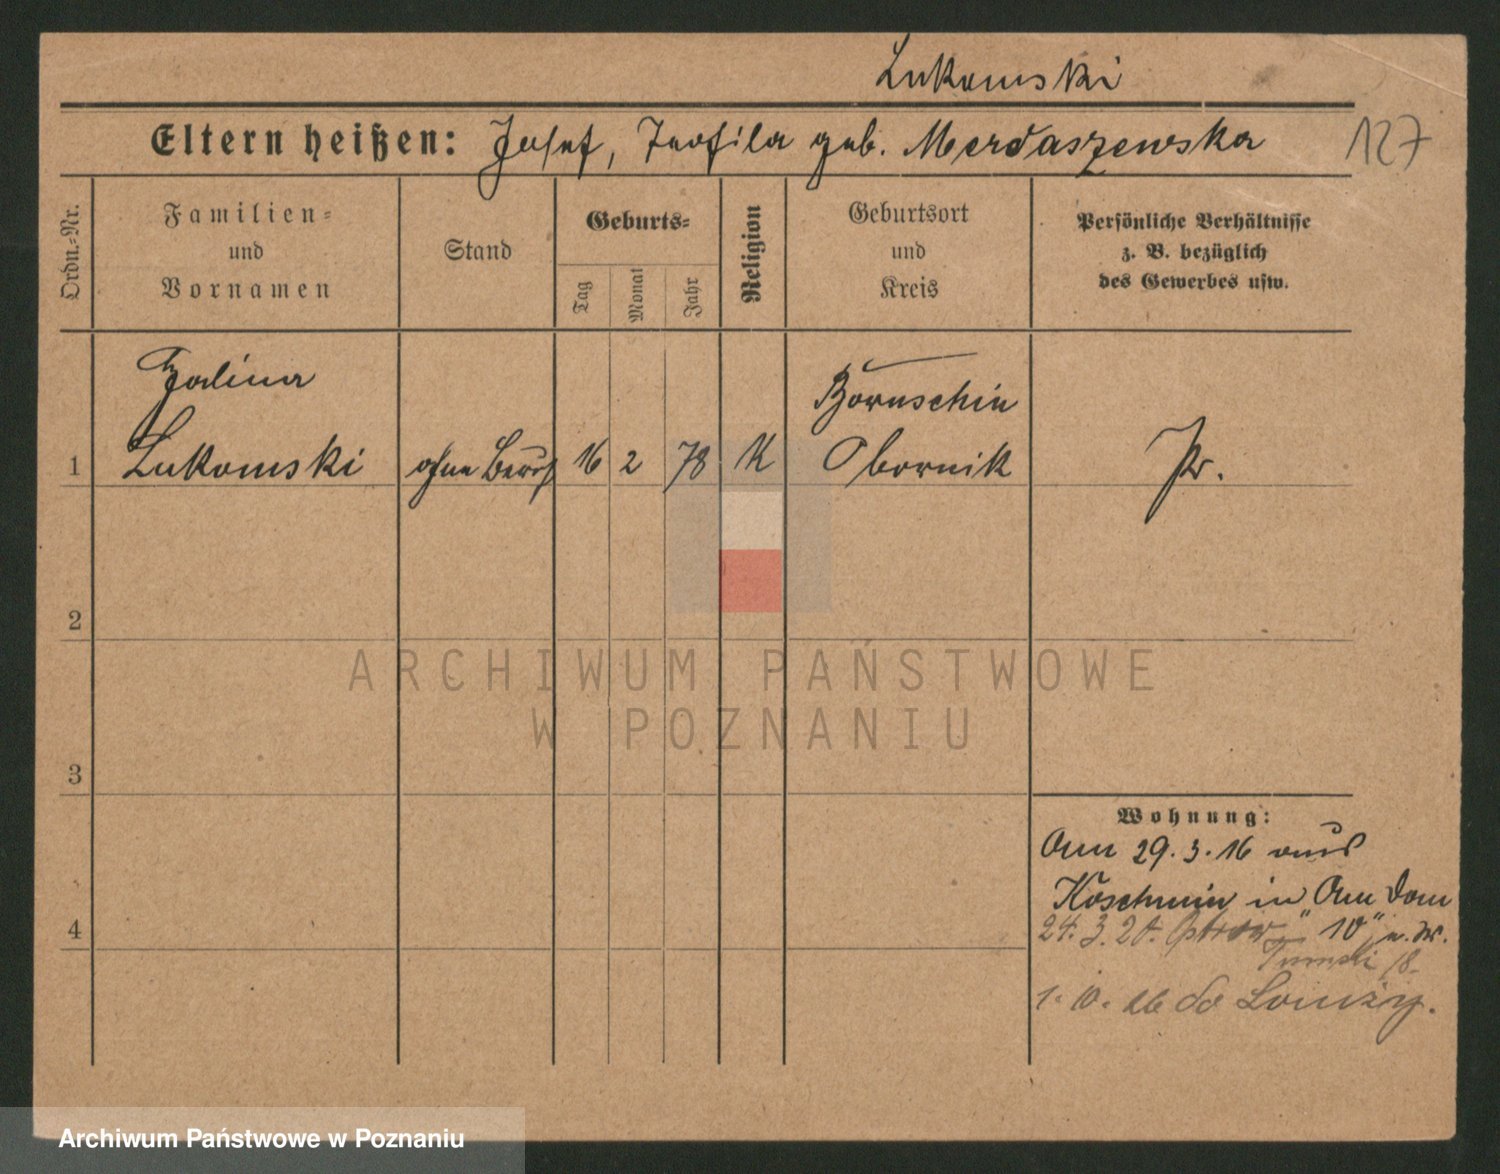 Lukomski
Eltern heißen: Josef, Teofila geb. Merdaszewska
127
Ordn.-Nr.
Familien-
und
Vornamen
Stand
Geburts-
Tag
Monat
Jahr
Religion
Geburtsort
und
Kreis
Persönliche Verhältnisse
z. B. bezüglich
des Gewerbes usw.
1
Lukomski
ohne Beruf
16
2
78
K
Boruschin
Obornik
Pr.
2
3
4
ARCHIWUM PAŃSTWOWE
W POZNANIU
Wohnung:
Am 29.3.16 aus
Koschmin in Am Dom
24.3.20. Ostrow "10"
Tumski 18
1.10. 26 do Lomży.
Archiwum Państwowe w Poznaniu